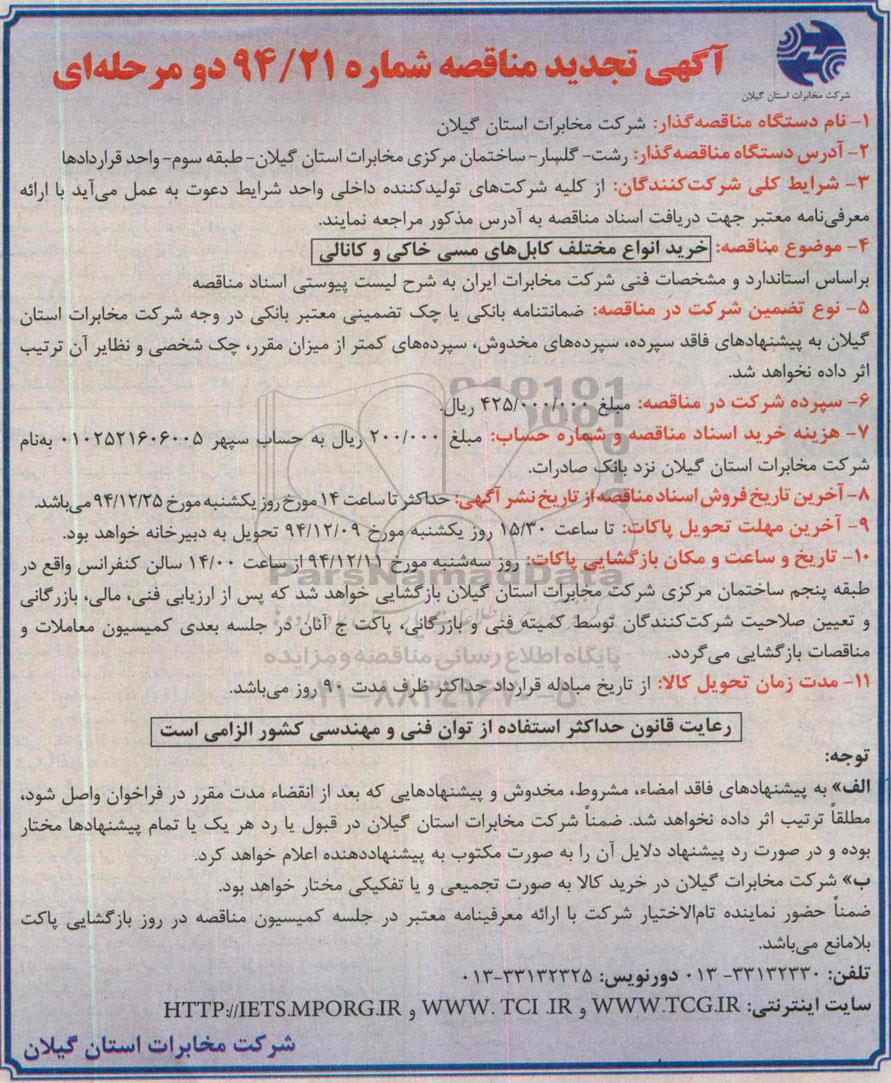 شرکت مخابرات استان گیلان
آگهی تجدید مناقصه شماره ۹۴/۲۱ دو مرحله‌ای
۱- نام دستگاه مناقصه‌گذار: شرکت مخابرات استان گیلان
۲- آدرس دستگاه مناقصه‌گذار: رشت- گلسار- ساختمان مرکزی مخابرات استان گیلان- طبقه سوم- واحد قراردادها
۳- شرایط کلی شرکت‌کنندگان: از کلیه شرکت‌های تولیدکننده داخلی واحد شرایط دعوت به عمل می‌آید با ارائه
معرفی‌نامه معتبر جهت دریافت اسناد مناقصه به آدرس مذکور مراجعه نمایند.
۴- موضوع مناقصه: خرید انواع مختلف کابل‌های مسی خاکی و کانالی
براساس استاندارد و مشخصات فنی شرکت مخابرات ایران به شرح لیست پیوستی اسناد مناقصه
۵- نوع تضمین شرکت در مناقصه: ضمانتنامه بانکی یا چک تضمینی معتبر بانکی در وجه شرکت مخابرات استان
گیلان به پیشنهادهای فاقد سپرده، سپرده‌های مخدوش، سپرده‌های کمتر از میزان مقرر، چک شخصی و نظایر آن ترتیب
اثر داده نخواهد شد.
۶- سپرده شرکت در مناقصه: مبلغ ۴۲۵/۰۰۰/۰۰۰ ریال.
۷- هزینه خرید اسناد مناقصه و شماره حساب: مبلغ ۲۰۰/۰۰۰ ریال به حساب سپهر ۰۱۰۲۵۲۱۶۰۶۰۰۵ به‌نام
شرکت مخابرات استان گیلان نزد بانک صادرات.
۸- آخرین تاریخ فروش اسناد مناقصه از تاریخ نشر آگهی: حداکثر تا ساعت ۱۴ مورخ روز یکشنبه مورخ ۹۴/۱۲/۲۵ می‌باشد.
۹- آخرین مهلت تحویل پاکات: تا ساعت ۱۵/۳۰ روز یکشنبه مورخ ۹۴/۱۲/۰۹ تحویل به دبیرخانه خواهد بود.
۱۰- تاریخ و ساعت و مکان بازگشایی پاکات: روز سه‌شنبه مورخ ۹۴/۱۲/۱۱ از ساعت ۱۴/۰۰ سالن کنفرانس واقع در
طبقه پنجم ساختمان مرکزی شرکت مخابرات استان گیلان بازگشایی خواهد شد که پس از ارزیابی فنی، مالی، بازرگانی
و تعیین صلاحیت شرکت‌کنندگان توسط کمیته فنی و بازرگانی، پاکت ج آنان در جلسه بعدی کمیسیون معاملات و
مناقصات بازگشایی می‌گردد.
۱۱- مدت زمان تحویل کالا: از تاریخ مبادله قرارداد حداکثر ظرف مدت ۹۰ روز می‌باشد.
رعایت قانون حداکثر استفاده از توان فنی و مهندسی کشور الزامی است
توجه:
الف» به پیشنهادهای فاقد امضاء، مشروط، مخدوش و پیشنهادهایی که بعد از انقضاء مدت مقرر در فراخوان واصل شود،
مطلقاً ترتیب اثر داده نخواهد شد. ضمناً شرکت مخابرات استان گیلان در قبول یا رد هر یک یا تمام پیشنهادها مختار
بوده و در صورت رد پیشنهاد دلایل آن را به صورت مکتوب به پیشنهاددهنده اعلام خواهد کرد.
ب» شرکت مخابرات گیلان در خرید کالا به صورت تجمیعی و یا تفکیکی مختار خواهد بود.
ضمناً حضور نماینده تام‌الاختیار شرکت با ارائه معرفینامه معتبر در جلسه کمیسیون مناقصه در روز بازگشایی پاکت
بلامانع می‌باشد.
تلفن: ۳۳۱۳۲۳۳۰- ۰۱۳ دورنویس: ۳۳۱۳۲۳۲۵-۰۱۳
سایت اینترنتی: WWW.TCG.IR و WWW. TCI .IR و HTTP://IETS.MPORG.IR
شرکت مخابرات استان گیلان
ParsNamadData
پایگاه اطلاع رسانی مناقصه و مزایده